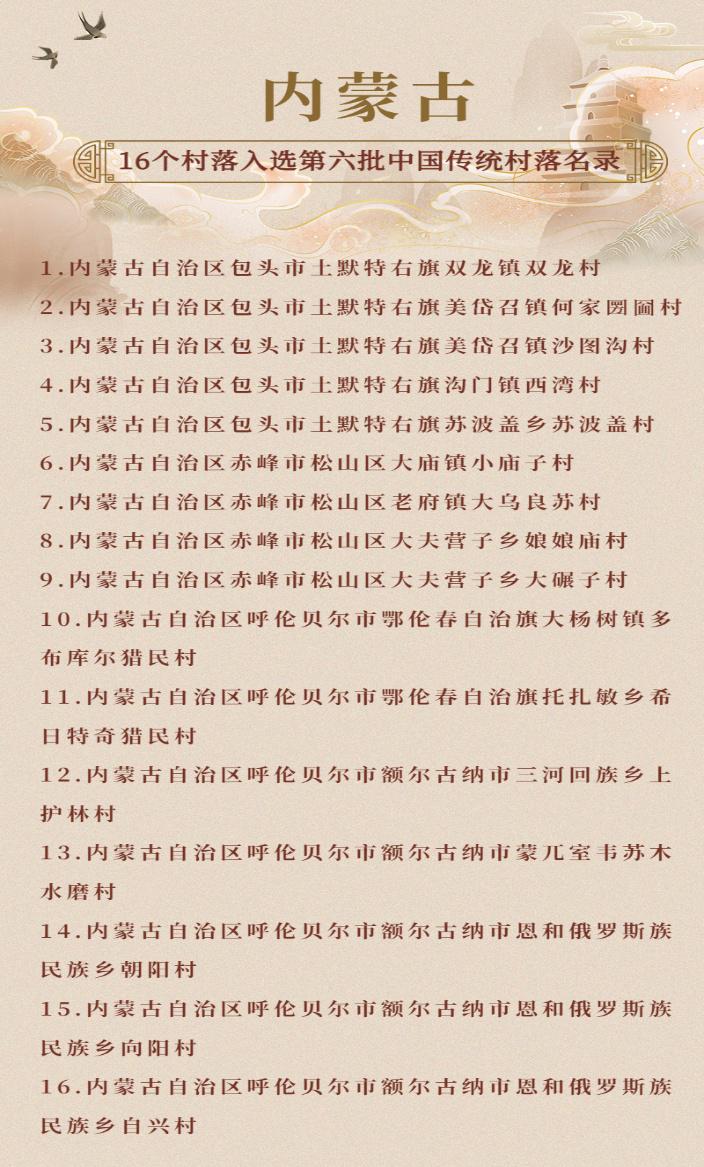 内蒙古
16个村落入选第六批中国传统村落名录
1.内蒙古自治区包头市土默特右旗双龙镇双龙村
2.内蒙古自治区包头市土默特右旗美岱召镇何家圐圙村
3.内蒙古自治区包头市土默特右旗美岱召镇沙图沟村
4.内蒙古自治区包头市土默特右旗沟门镇西湾村
5.内蒙古自治区包头市土默特右旗苏波盖乡苏波盖村
6.内蒙古自治区赤峰市松山区大庙镇小庙子村
7.内蒙古自治区赤峰市松山区老府镇大乌良苏村
8.内蒙古自治区赤峰市松山区大夫营子乡娘娘庙村
9.内蒙古自治区赤峰市松山区大夫营子乡大碾子村
10.内蒙古自治区呼伦贝尔市鄂伦春自治旗大杨树镇多
布库尔猎民村
11.内蒙古自治区呼伦贝尔市鄂伦春自治旗托扎敏乡希
日特奇猎民村
12.内蒙古自治区呼伦贝尔市额尔古纳市三河回族乡上
护林村
13.内蒙古自治区呼伦贝尔市额尔古纳市蒙兀室韦苏木
水磨村
14.内蒙古自治区呼伦贝尔市额尔古纳市恩和俄罗斯族
民族乡朝阳村
15.内蒙古自治区呼伦贝尔市额尔古纳市恩和俄罗斯族
民族乡向阳村
16.内蒙古自治区呼伦贝尔市额尔古纳市恩和俄罗斯族
民族乡自兴村